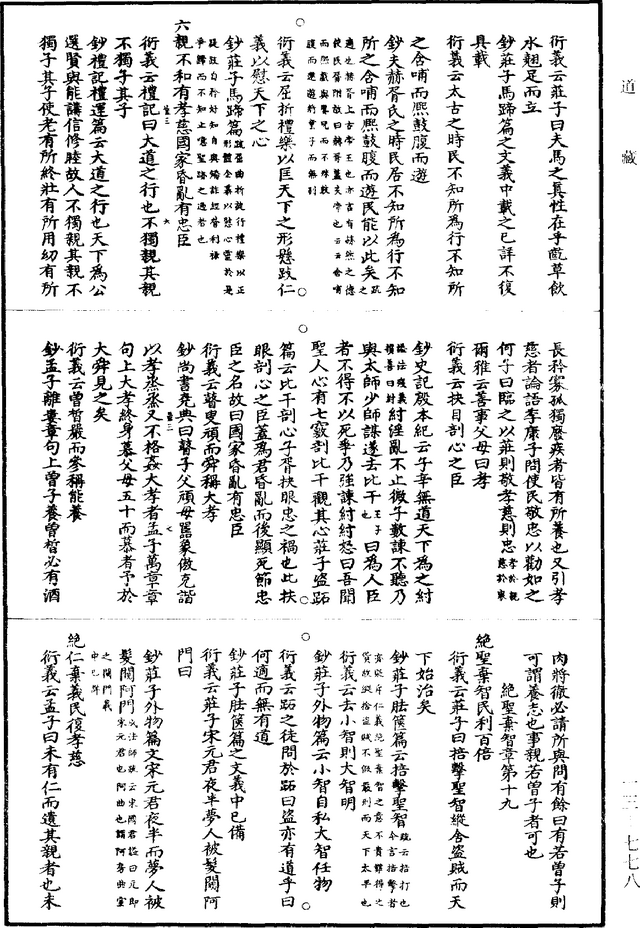 道藏
衍義云莊子曰夫馬之真性在乎齕草飲
水翹足而立
鈔莊子馬蹄篇之文義中載之已詳不復
具載
衍義云太古之時民不知所為行不知所
之含哺而熈鼓腹而遊
鈔夫赫胥氏之時民居不知所為行不知
所之含哺而熈鼓腹而遊民能以此矣
衍義云屈折禮樂以匡天下之形縣跂仁
義以慰天下之心
鈔莊子馬蹄篇
六親不和有孝慈國家昏亂有忠臣
衍義云禮記曰大道之行也不獨親其親
不獨子其子
鈔禮記禮運篇云大道之行也天下為公
選賢與能講信修睦故人不獨親其親不
獨子其子使老有所終壯有所用幼有所
長矜寡孤獨廢疾者皆有所養也又引孝
慈者論語季康子問使民敬忠以勸如之
何子曰臨之以莊則敬孝慈則忠
爾雅云善事父母曰孝
衍義云抉目剖心之臣
鈔史記殷本紀云子辛無道天下為之紂
紂淫亂不止微子數諫不聽乃
與太師少師謀遂去比干王子曰為人臣
者不得不以死爭乃強諫紂紂怒曰吾聞
聖人心有七竅剖比干觀其心莊子盗跖
篇云比干剖心子胥抉眼忠之禍也此抉
眼剖心之臣蓋為君昏亂而後顯死節忠
臣之名故曰國家昏亂有忠臣
衍義云瞽叟頑而舜稱大孝
鈔尚書堯典曰瞽子父頑母嚚象傲克諧
以孝烝烝乂不格姦大孝者孟子萬章章
句上大孝終身慕父母五十而慕者予於
大舜見之矣
衍義云曾晳嚴而參稱能養
鈔孟子離婁章句上曾子養曾晳必有酒
肉將徹必請所與問有餘曰有若曾子則
可謂養志也事親若曾子者可也
絶聖棄智章第十九
絶聖棄智民利百倍
衍義云莊子曰掊擊聖智縱舍盗賊而天
下始治矣
鈔莊子胠篋篇云掊擊聖智
衍義云去小智則大智明
鈔莊子外物篇云小智自私大智任物
衍義云跖之徒問於跖曰盗亦有道乎曰
何適而無有道
鈔莊子胠篋篇之文義中已備
衍義云莊子宋元君夜半夢人被髮闚阿
門曰
鈔莊子外物篇文宋元君夜半而夢人被
髮闚阿門
絶仁棄義民復孝慈
衍義云孟子曰未有仁而遺其親者也未
一三－七七八